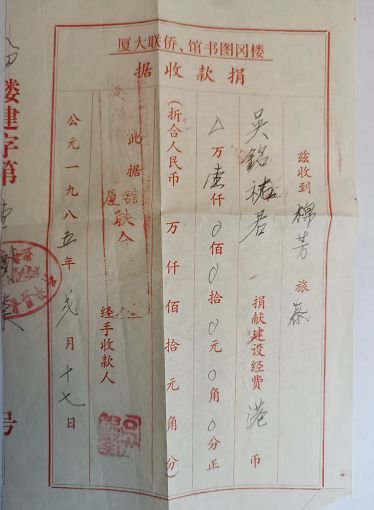 楼冈图书馆、侨联大厦
捐款收据
兹收到棉芳旅泰
吳銘君捐献建设经费港币
△万壹仟0佰0拾0元0角0分正
(折合人民币 万 仟 佰 拾 元 角 分)
此据
经手收款人
公元一九八五年弍月十七日
楼建字第 号